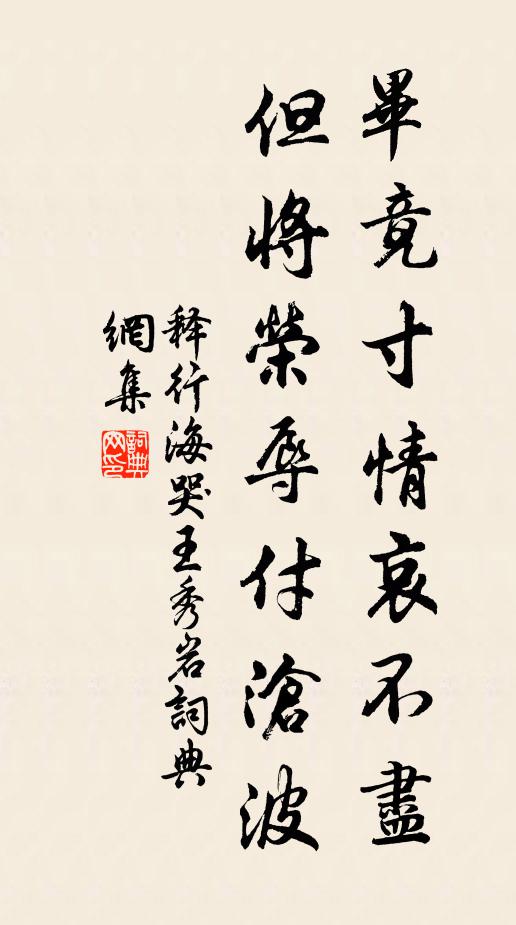 畢竟寸情哀不盡
但將榮辱付滄波
释行海哭王秀岩詞典
網集
詞典
网印